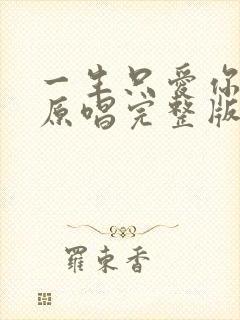 一生只爱你
原唱完整版
羅東香